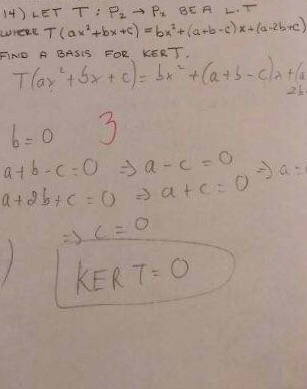 14) LET T : P₂ → P₂ BE A L.T
WHERE T(ax²+bx+c) = bx²+(a+b-c)x+(a-2b+c)
FIND A BASIS FOR KERT.
T(ax²+bx+c) = bx²+(a+b-c)x+(a
2b
b=0
3
a+b-c=0 ⇒ a-c=0 ⇒ a=
a+2b+c=0 ⇒ a+c=0
⇒ c=0
)
KERT=0